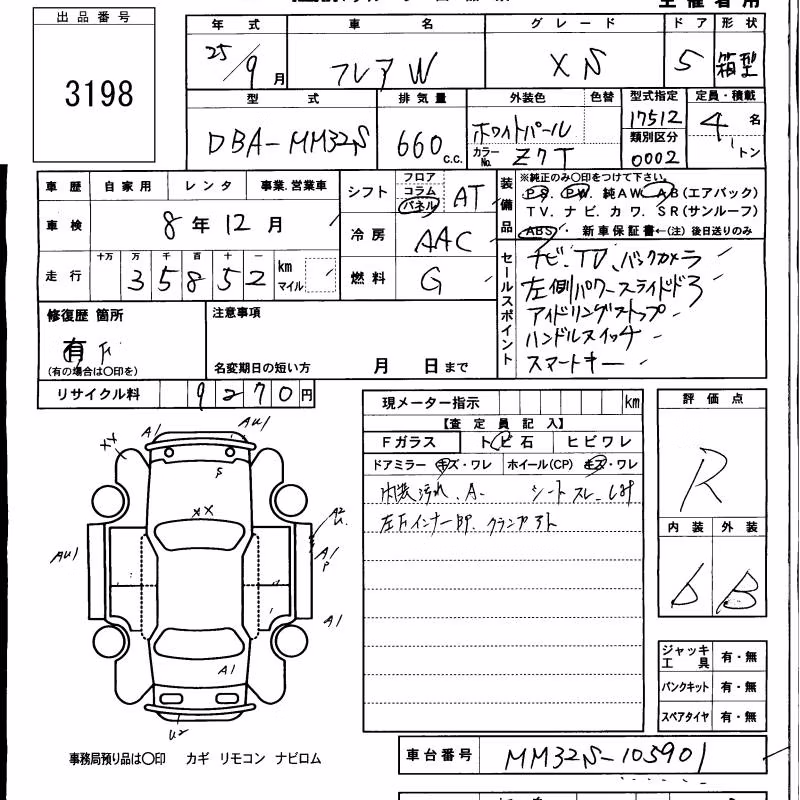 出品番号
3198
年式 車名 グレード ドア 形状
25/9月 フレアW XS 5 箱型
型式 排気量 外装色 色替 型式指定 定員・積載
DBA-MM32S 660 c.c. ホワイトパール 17512 4名
カラーNo. Z7T 類別区分 0002 トン
車歴 自家用 レンタ 事業.営業車
車検 8年12月
走行 十万 万 千 百 十 一 km マイル
35852
シフト フロア コラム パネル AT
冷房 AAC
燃料 G
装備品 ※純正のみ〇印をつけて下さい。
PS. PW. 純AW. AB(エアバック)
TV. ナビ. カワ. SR(サンルーフ)
ABS. 新車保証書←(注) 後日送りのみ
セールスポイント
ナビ、TV、バックカメラ
左側パワースライドドア
アイドリングストップ
ハンドルスイッチ
スマートキー
修復歴 箇所
有
(有の場合は〇印を)
注意事項
名変期日の短い方 月 日まで
リサイクル料 9270円
現メーター指示 km
【査定員記入】
Fガラス トビ石 ヒビワレ
ドアミラー キズ・ワレ ホイール(CP) キズ・ワレ
内装汚れ、A. シートスレ
左Fインナー クランプアト
評価点
R
内装 外装
b B
XX A1 AU1
S
XX
A2
AU1 A1
P
A1
A1
U2
ジャッキ工具 有・無
パンクキット 有・無
スペアタイヤ 有・無
事務局預り品は〇印 カギ リモコン ナビロム
車台番号 MM32S-105901